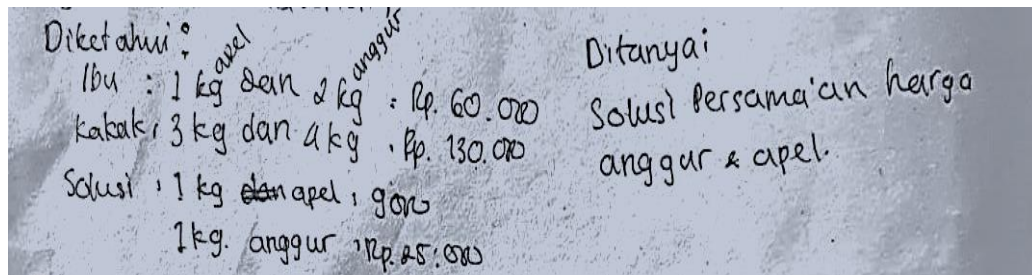 Diketahui :
Ibu : 1 kg apel dan 2 kg anggur : Rp. 60.000
Kakak : 3 kg dan 4 kg : Rp. 130.000
Solusi : 1 kg apel :
1 kg. anggur : Rp. 25.000
Ditanyai
Solusi Persama'an harga
anggur & apel.